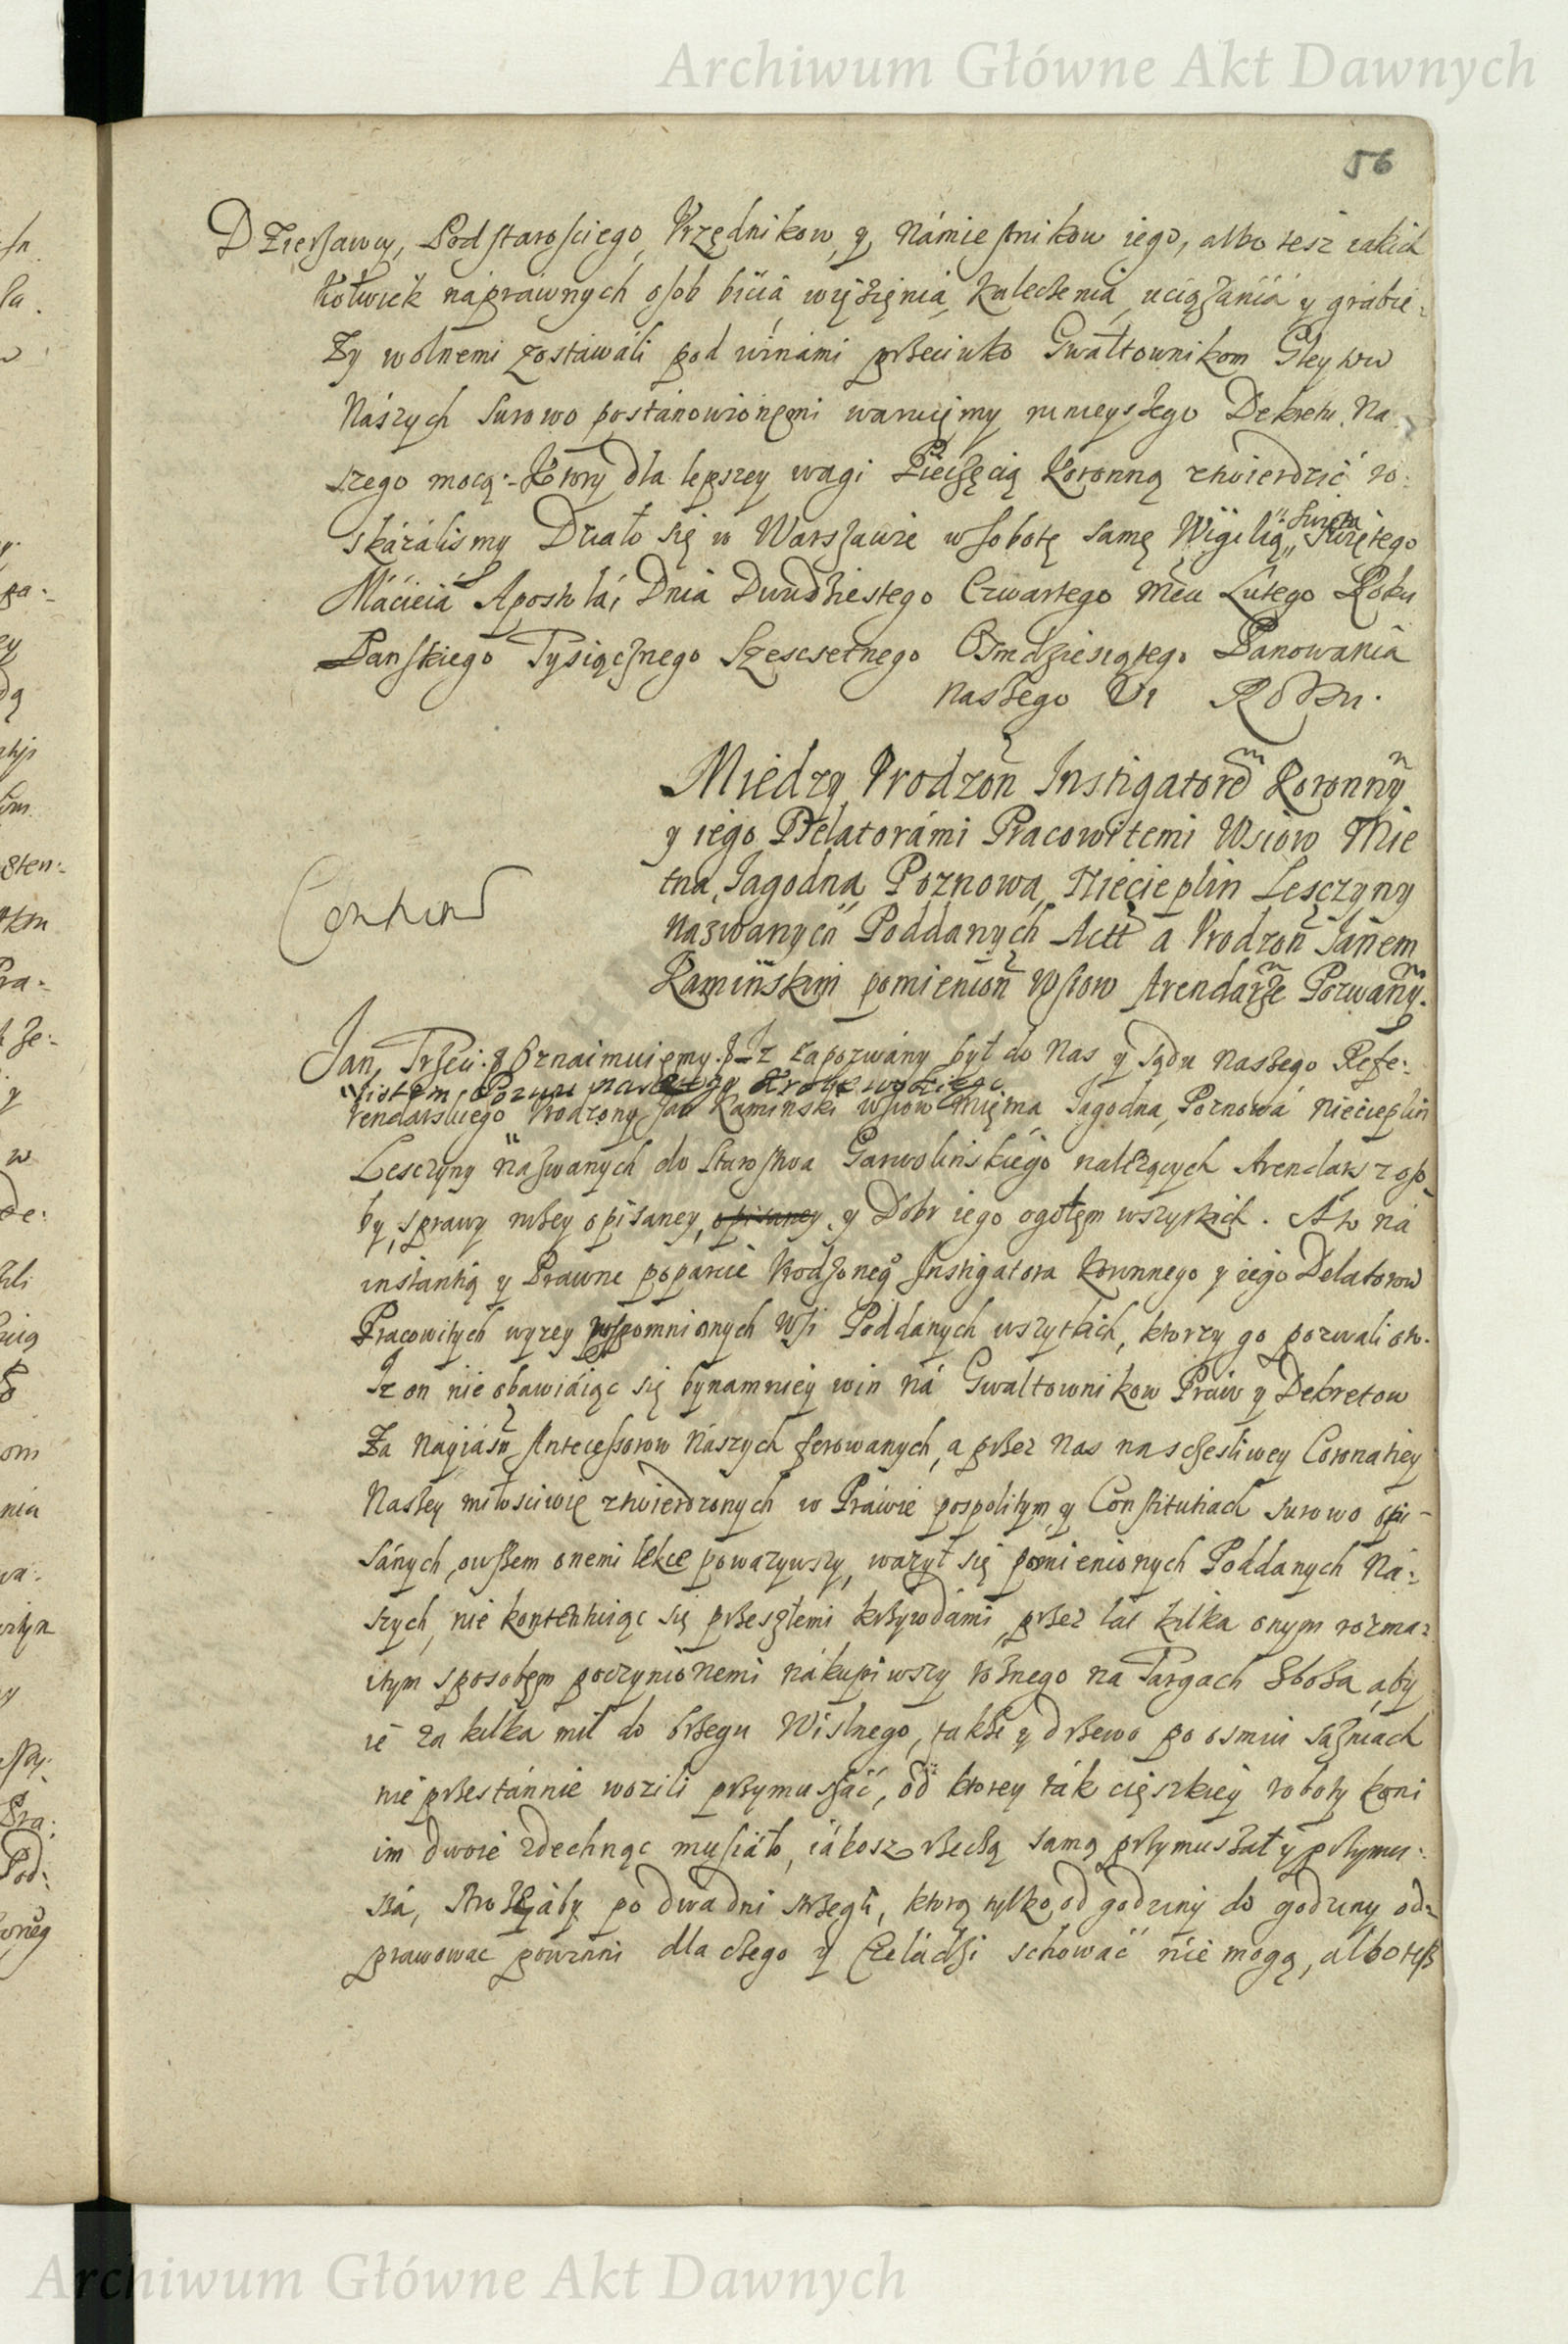 Archiwum Główne Akt Dawnych
56
Dzierżawcy, Podstarosciego, Vrzędnikow, y Námiestnikow iego, albo tesz iakich
kolwiek naprawnych osob bicia, więzięnia, kaleczenia, uciązánia y grábie:
ży wolnemi zostawáli pod winámi przeciwko Gwałtownikom Gleytow
Nászych surowo postánowionęmi waruięmy ninieyszego Dekretu Na
szego mocą. Ktory dla lepszey wagi Pieczęcią Koronną ztwierdzić ro:
skázálismy Działo się w Warszawie w Sobotę samę Wigilią Swięta Swiętego
Mácieia Apostołá, Dnia Dwudziestego Czwartego Mcu Lutego Roku
Panskiego Tysiącznego Szescsetnego Osmdziesiątego Panowania
naszego VI Roku.
Miedzy Vrodzon Instigatorem Koronnym
y iego Delatorámi Pracowitemi Wsiow Mie
tna, Jagodna, Poznowa, Niecieplin Lesczyny
nazwanych Poddanych Actt a Vrodzon Janem
Kaminskim pomienion Wsiow Arendarze Pozwanym.
Contum
Jan Trzeci. Oznaimuięmy. Iz zapozwány był do Nas, y Sądu naszego Refe:
listem Pozwu
rendarskiego Vrodzony Jan Kaminski wsiow Miętna, Jagodna, Poznowá Niecieplin
Lesczyny nazwanych do Starostwa Garwolinskiego nalezących Arendarz z oso
by, sprawy nizey opisaney, opisaney, y Dobr iego ogołęm wszystkich. A to ná
instantią y Prawne poparcie Vrodzoneg Instigatora Koronnego y iego Delatorow
Pracowitych wyzey wspomnionych Wsi Poddanych wszytkich, ktorzy go pozwali oto.
Iz on nie obawiáiąc się bynamniey win ná Gwaltownikow Praw y Dekretow
Za Nayiásn Antecessorow Nászych ferowanych, a przez Nas na sczesliwey Coronatiey
Naszey miłosciwie ztwierdzonych w Práwie pospolitym y Constitutiach surowo opi-
sánych, owszem onemi lekce powazywszy, wazył się pomienionych Poddanych Ná:
szych, nie kontentuiąc się przeszłemi krzywdámi, przez lat kilka onym rozma:
itym sposobęm poczynionemi nákupiwszy roznego na Targach Zboza aby
ie za kilka mil do brzegu Wislnego, takze y drzewo po osmiu sązniach
nie przestánnie wozili przymuszáć, od ktorey ták cięszkiey roboty koni
im dwoie zdechnąc musiáło, iákosz rzeczą samą przymuszał y przymu:
szá, Strozą áby po dwa dni strzegli, ktorą tylko od godziny do godziny od:
prawowac powinni dla czego y Czeládzi schowáć nie mogą, albo tesz
Archiwum Główne Akt Dawnych